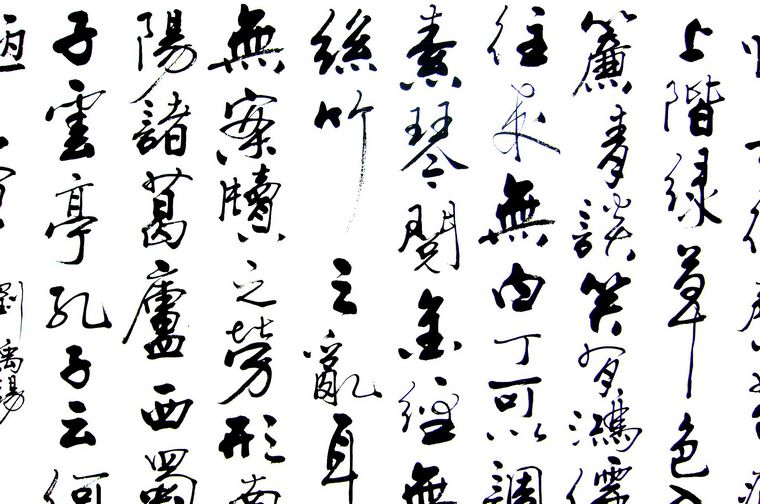 上階緑草色入
簾青談笑有鴻儒
往来無白丁可以調
素琴閱金經無
絲竹之亂耳
無案牘之勞形南
陽諸葛廬西蜀
子雲亭孔子云何
劉禹錫